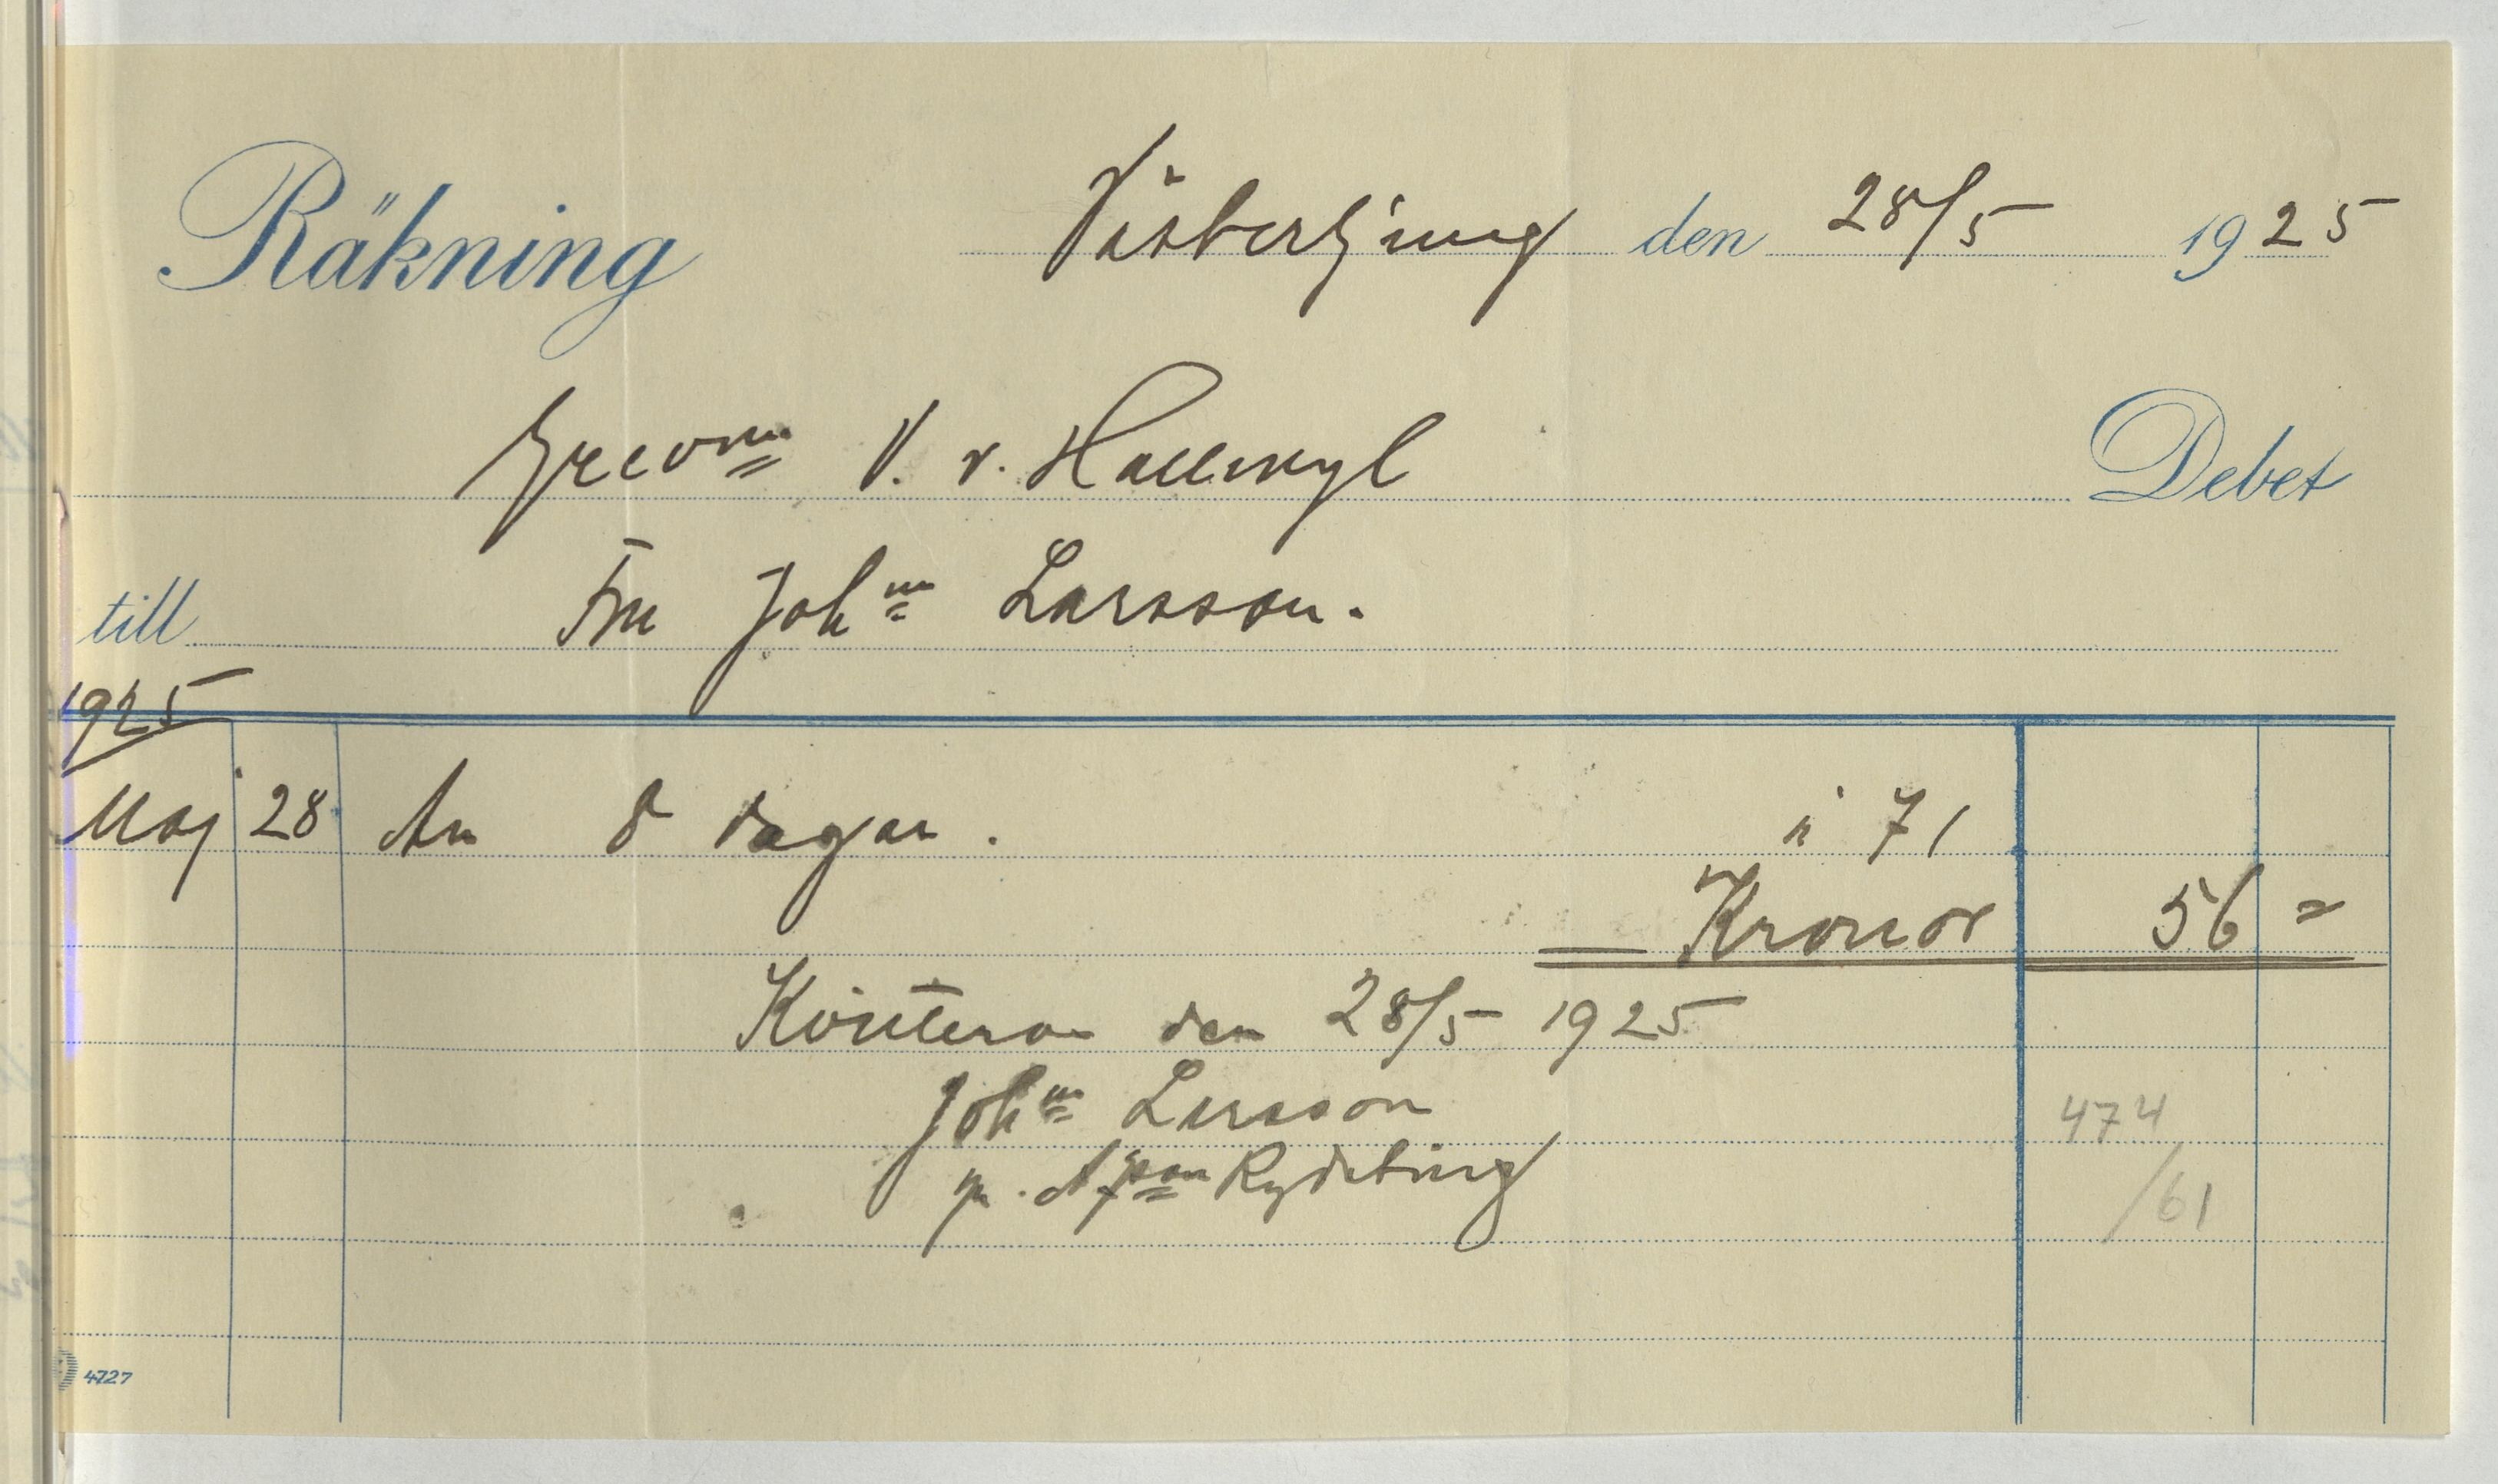 Räkning Väsberljung den 28/5 1925
Grevinn V. v. Hallwyl Debet
till Fru Johna Larsson.
1925
Maj 28 An 8 dagar. à 7/
Kronor 56 =
Kvitteras den 28/5 1925
Johna Larsson
474
/61
4727